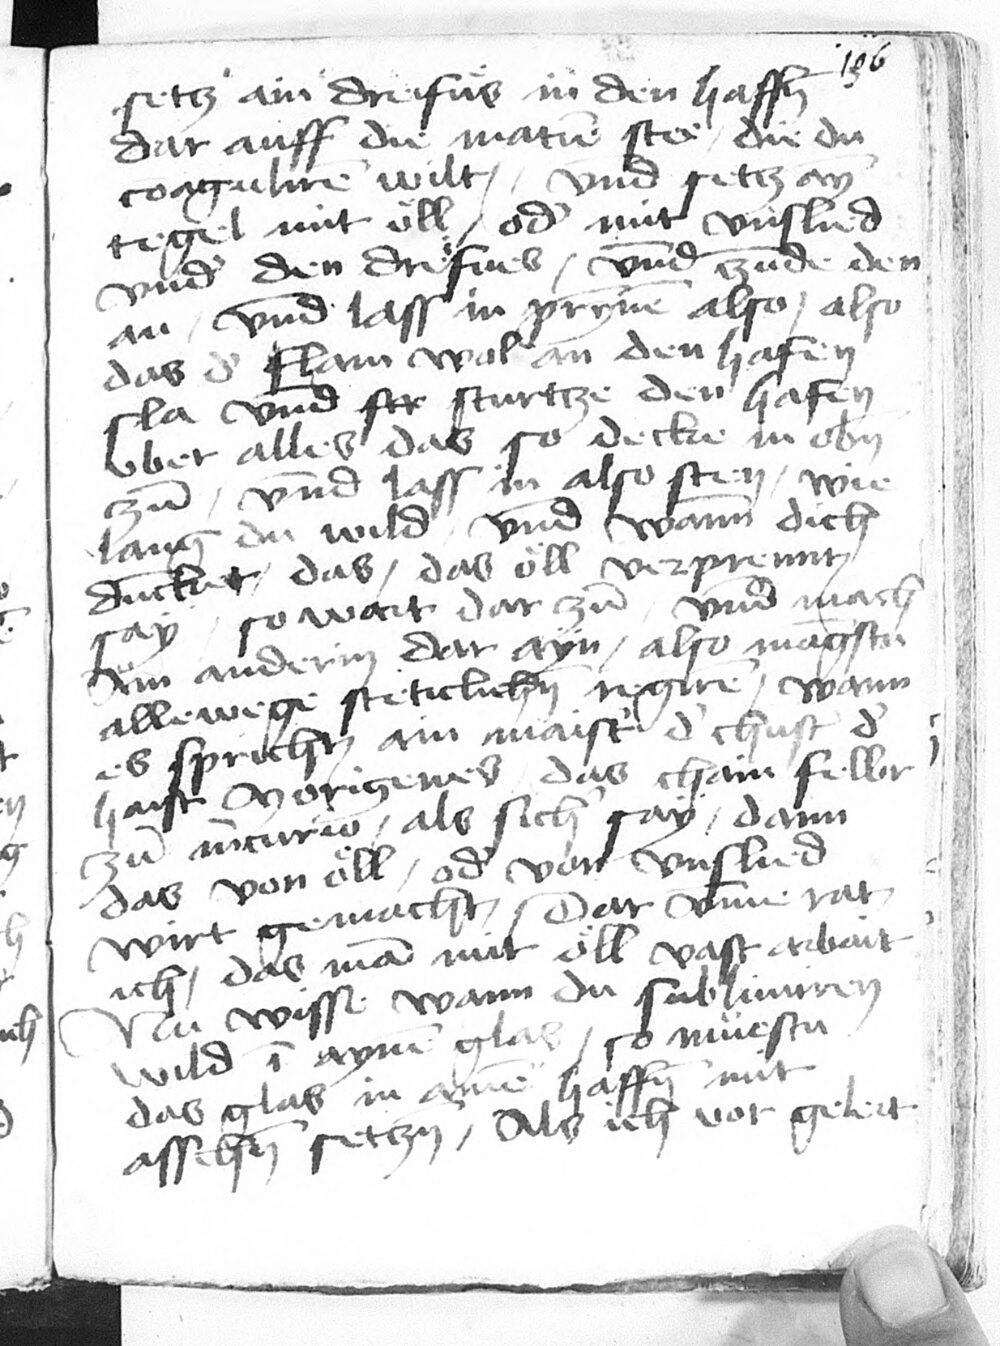 106
setz ain dreifüs in den haffn̄
dar auff die matiē ste / die du
coagulirē wilt / vnd setz ay̅
tegel mit öll / od' mit vnslied
vnd' den dreifues / vnd zunde den
an / vnd lass in prÿnē also / also
das d' flam wol an den hafen
sla vnd stürtze den hafen
vber alles das so decke in obn̄
zū / vnd lass in also sten / wie
lang du wild / vnd wann dich
duncket / das / das öll verprennt
say / so wart dar zū / vnd mach
ain anderm dar ayn / also magstu
allewege steticlichn̄ regirē / wann
es spricht ain maist' d' chūst d'
haist Yorigenes / das chain feẅr
zū m̄curio / als sich say / dann
das von öll / od' von vnslied
wirt gemacht / Dar vmē rat
ich / das mā mit öll vast arbait
Nu wisse wann du sublimiren
wild ī aynē glas / so müestu
das glas in ainē haffn̄ mit
asschn̄ setzn̄ / Als ich vor gelert